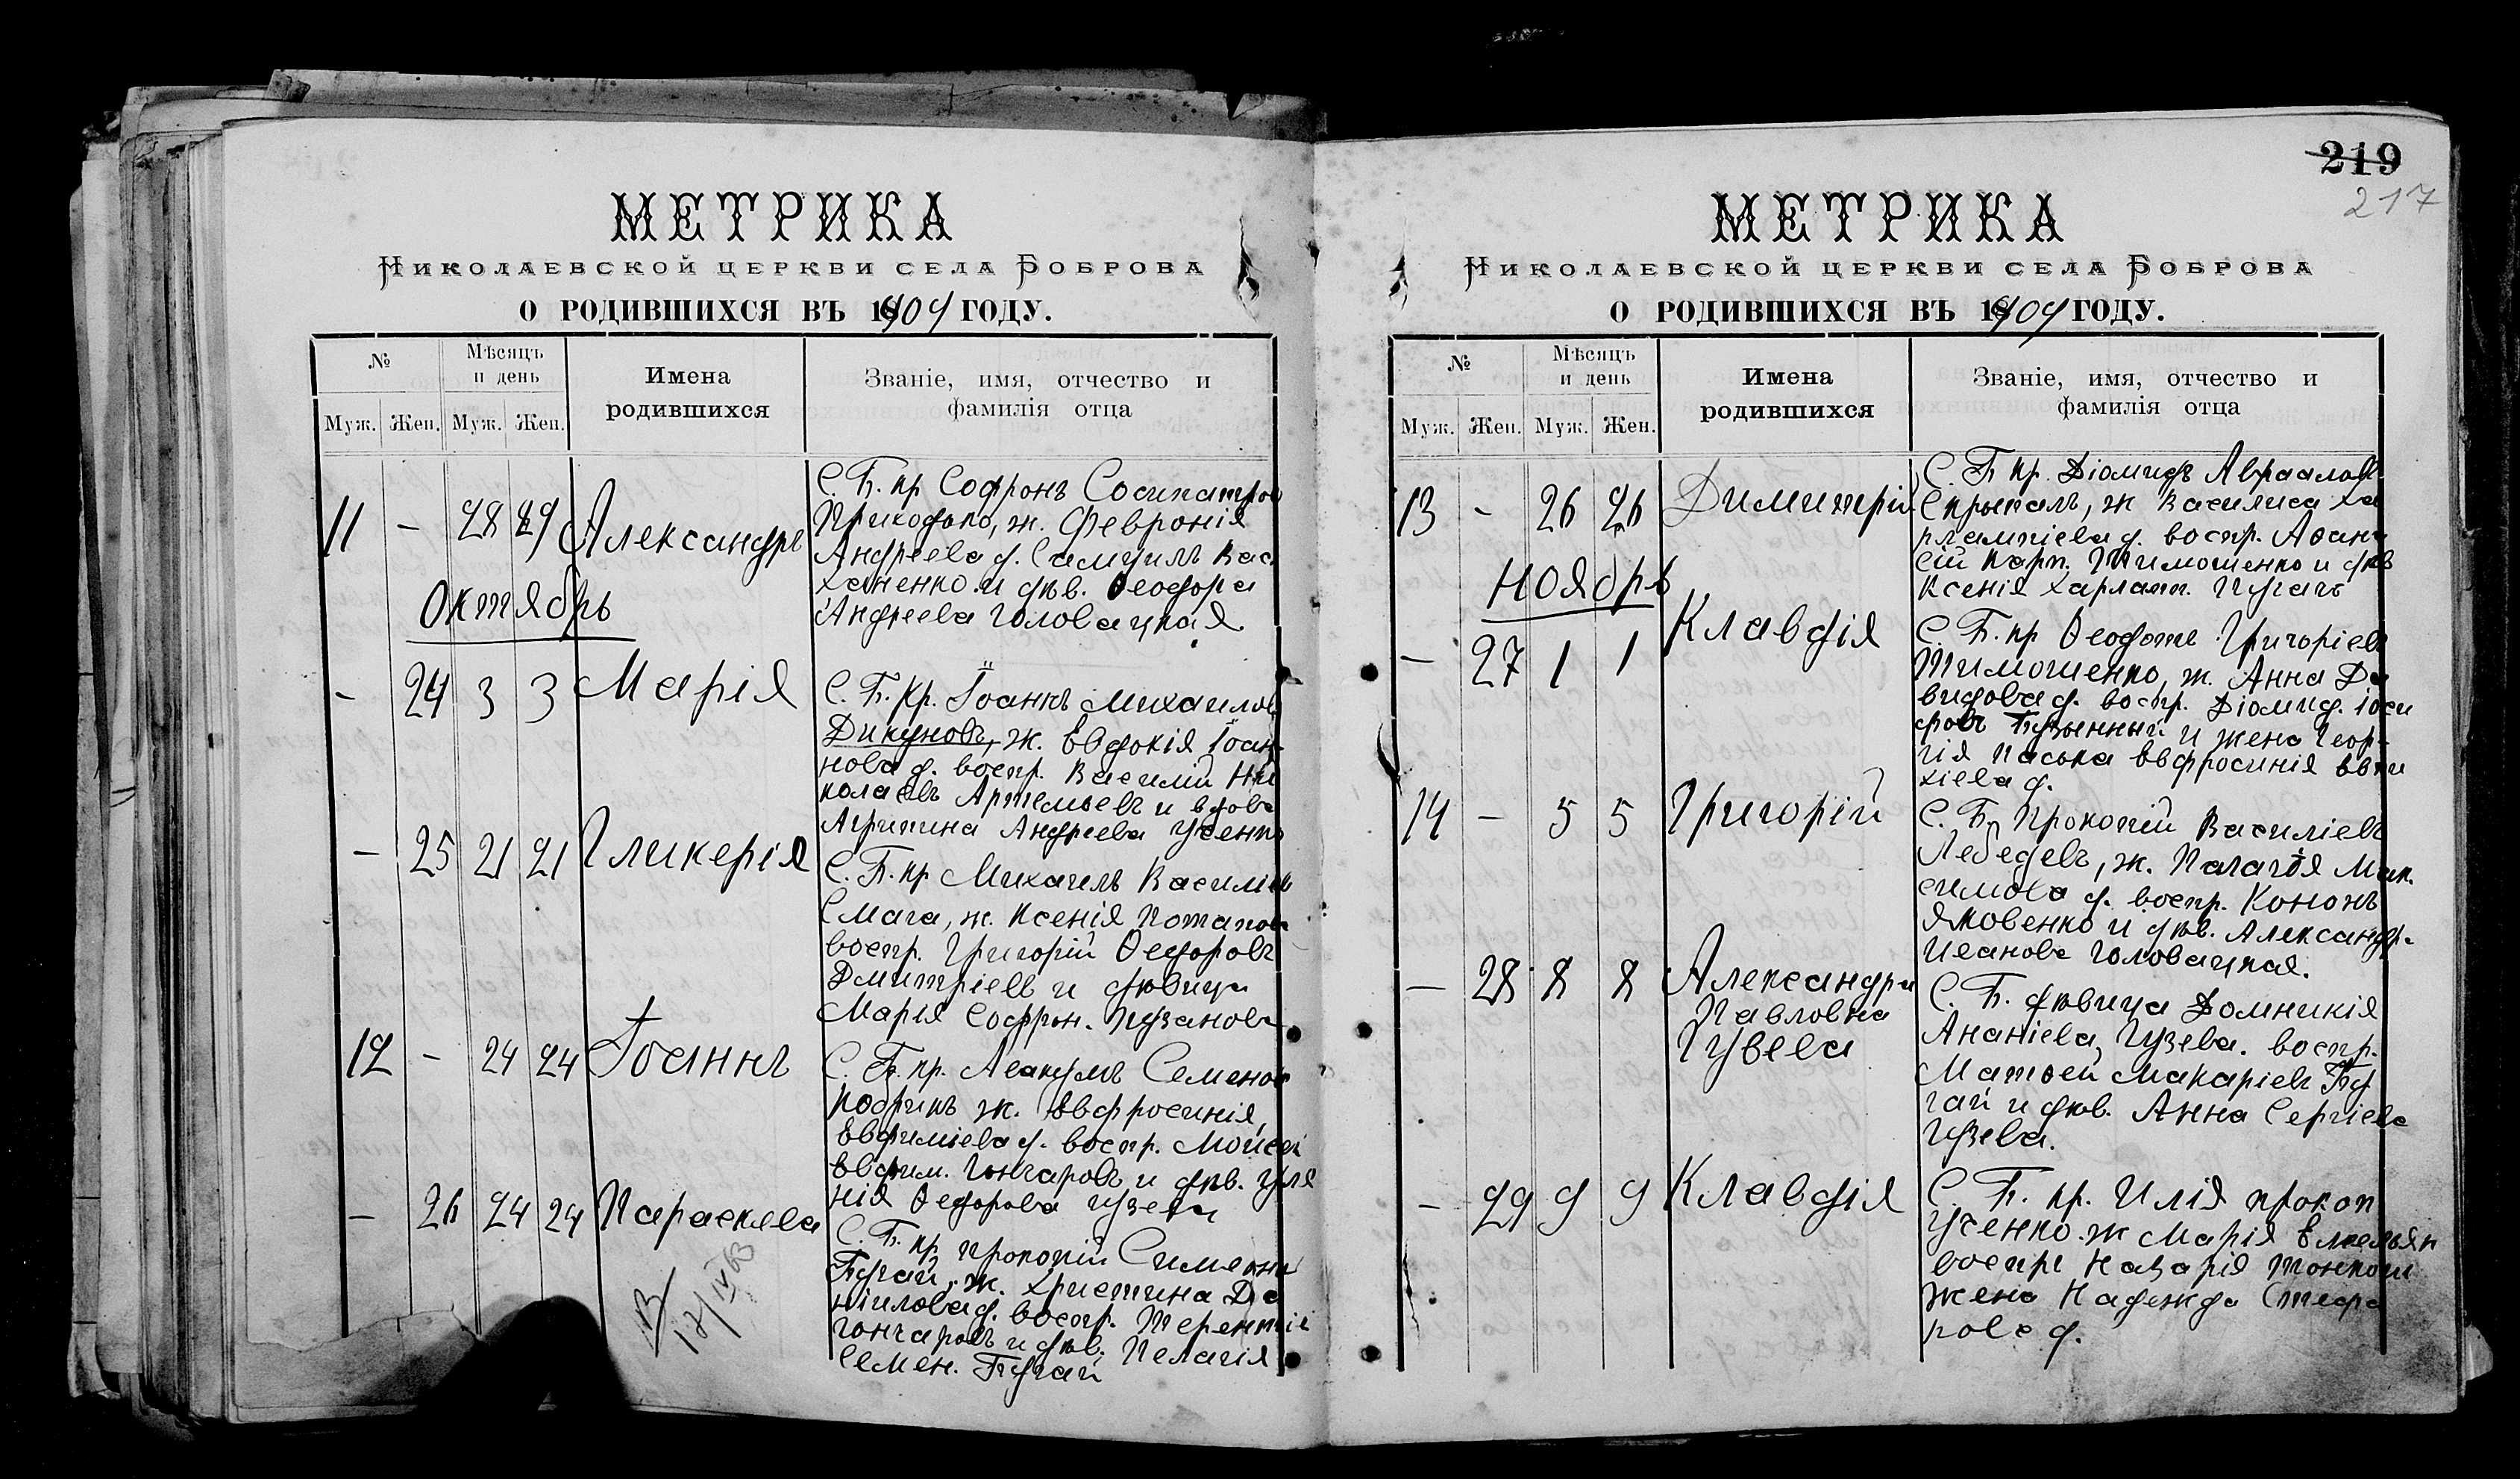 МЕТРИКА
Николаевской церкви села Боброва
О РОДИВШИХСЯ ВЪ 1904 ГОДУ.
№
Мѣсяцъ и день
Имена родившихся
Званіе, имя, отчество и фамилія отца
Муж. Жен. Муж. Жен.
11 - 28 29 Александръ
С. Б. кр Софронъ Сосипатров
Приходько, ж. Февронія
Андреева д. Самуилъ Вас.
и дѣв. Ѳеодора
Андреева Головацкая
Октябрь
- 24 3 3 Марія
С. Б. кр. Іоаннъ Михаилов
Дикуновъ, ж. Евдокія Іоан-
нова д. воспр. Василій Ни
колаевъ Артемьевъ и вдова
Агрипина Андреева Усенко
- 25 21 21 Гликерія
С. Б. кр Михаилъ Василіев
Смага, ж. Ксенія Потапов
воспр. Григорій Ѳедоровъ
Дмитріевъ и дѣвица
Марія Софрон. Пузанова
12 - 24 24 Іоаннъ
С. Б. кр. Аввакумъ Семенов
Кобрикъ ж. Евфросинія
Евфиміева д. воспр. Мойсей
Евфим. Гончаровъ и дѣв. Улія
нія Ѳедорова Гузева
- 26 24 24 Параскева
С. Б. кр Прокопій Симеонов
Бугай, ж. Христина Да
ніилова д. воспр. Терентій
Гончаровъ и дѣв. Пелагія
Семен. Бугай
В
12/IV 63
219
217
МЕТРИКА
Николаевской церкви села Боброва
О РОДИВШИХСЯ ВЪ 1904 ГОДУ.
№
Мѣсяцъ и день
Имена родившихся
Званіе, имя, отчество и фамилія отца
Муж. Жен. Муж. Жен.
13 - 26 26 Димитрій
С. Б. кр. Діомидъ Авраамов
Скрыпаль, ж Василиса Ха
рлампіева д. воспр. Аѳана
сій Карп. Тимошенко и дѣв
Ксенія Харламп. Пугачъ
Ноябрь
- 27 1 1 Клавдія
С. Б. кр Ѳеодотъ Григоріев
Тимошенко, ж. Анна Да
видова д. воспр. Діомид. Іоси
фовъ и жена Геор-
гія Паська Евфросинія Евти
хіева д.
14 - 5 5 Григорій
С. Б. Прокопій Василіевъ
Лебедевъ, ж. Палагія Мак
симова д. воспр. Кононъ
Яковенко и дѣв. Александр.
Иванова Головацкая.
- 28 8 8 Александра
Павловна
Гузева
С. Б. дѣвица Домникія
Ананіева, Гузева. воспр.
Матѳей Макаріевъ Бу
гай и дѣв. Анна Сергіева
Гузева.
- 29 9 9 Клавдія
С. Б. кр. Илія Прокоп
Усенко. ж Марія Емельян
воспр Назарія Тонкош
жена Надежда Стефа
нова д.